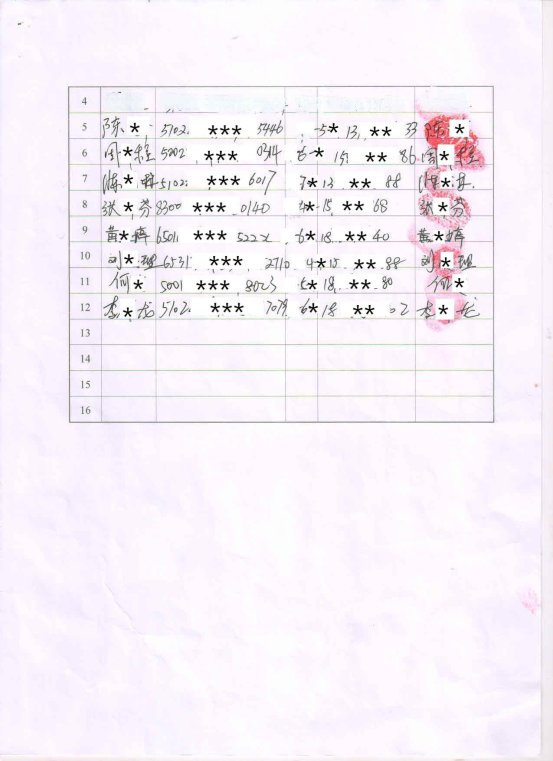 4
5 陈* 5102 *** 3446 5* 13 ** 33 陈*
6 周*程 5202 *** 0314 6* 15 ** 86 周*程
7 陈* 5102 *** 6017 7* 13 ** 88
8 张*芬 8300 *** 0140 4* 15 ** 68 张*芬
9 黄* 6501 *** 522X 6* 18 ** 40 黄*
10 刘* 6531 *** 2710 4* 15 ** 88 刘*
11 何* 5001 *** 8023 5* 18 ** 80 何*
12 李*龙 5102 *** 7079 6* 18 ** 02 李*龙
14
15
16